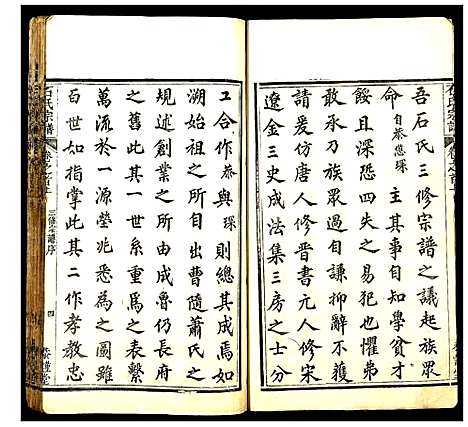 吾石氏三修宗譜之議起族眾
命自慚恁琛主其事自知學貧才
餒且深恐四失之易犯也懼弗
敢承乃族眾以自謙抑辭不獲
請爰仿唐人修晉書元人修宋
遼金三史成法集三房之士分
工合作恁與琛則總其成焉如
溯始祖之所由出曹隨蕭氏之
規述創業之所由成魯仍長府
之舊此其一世系重為之表繫
萬派於一本先塋兆悉為之圖雖
百世如指掌此其二作孝教忠
石氏宗譜
三修宗譜序
四